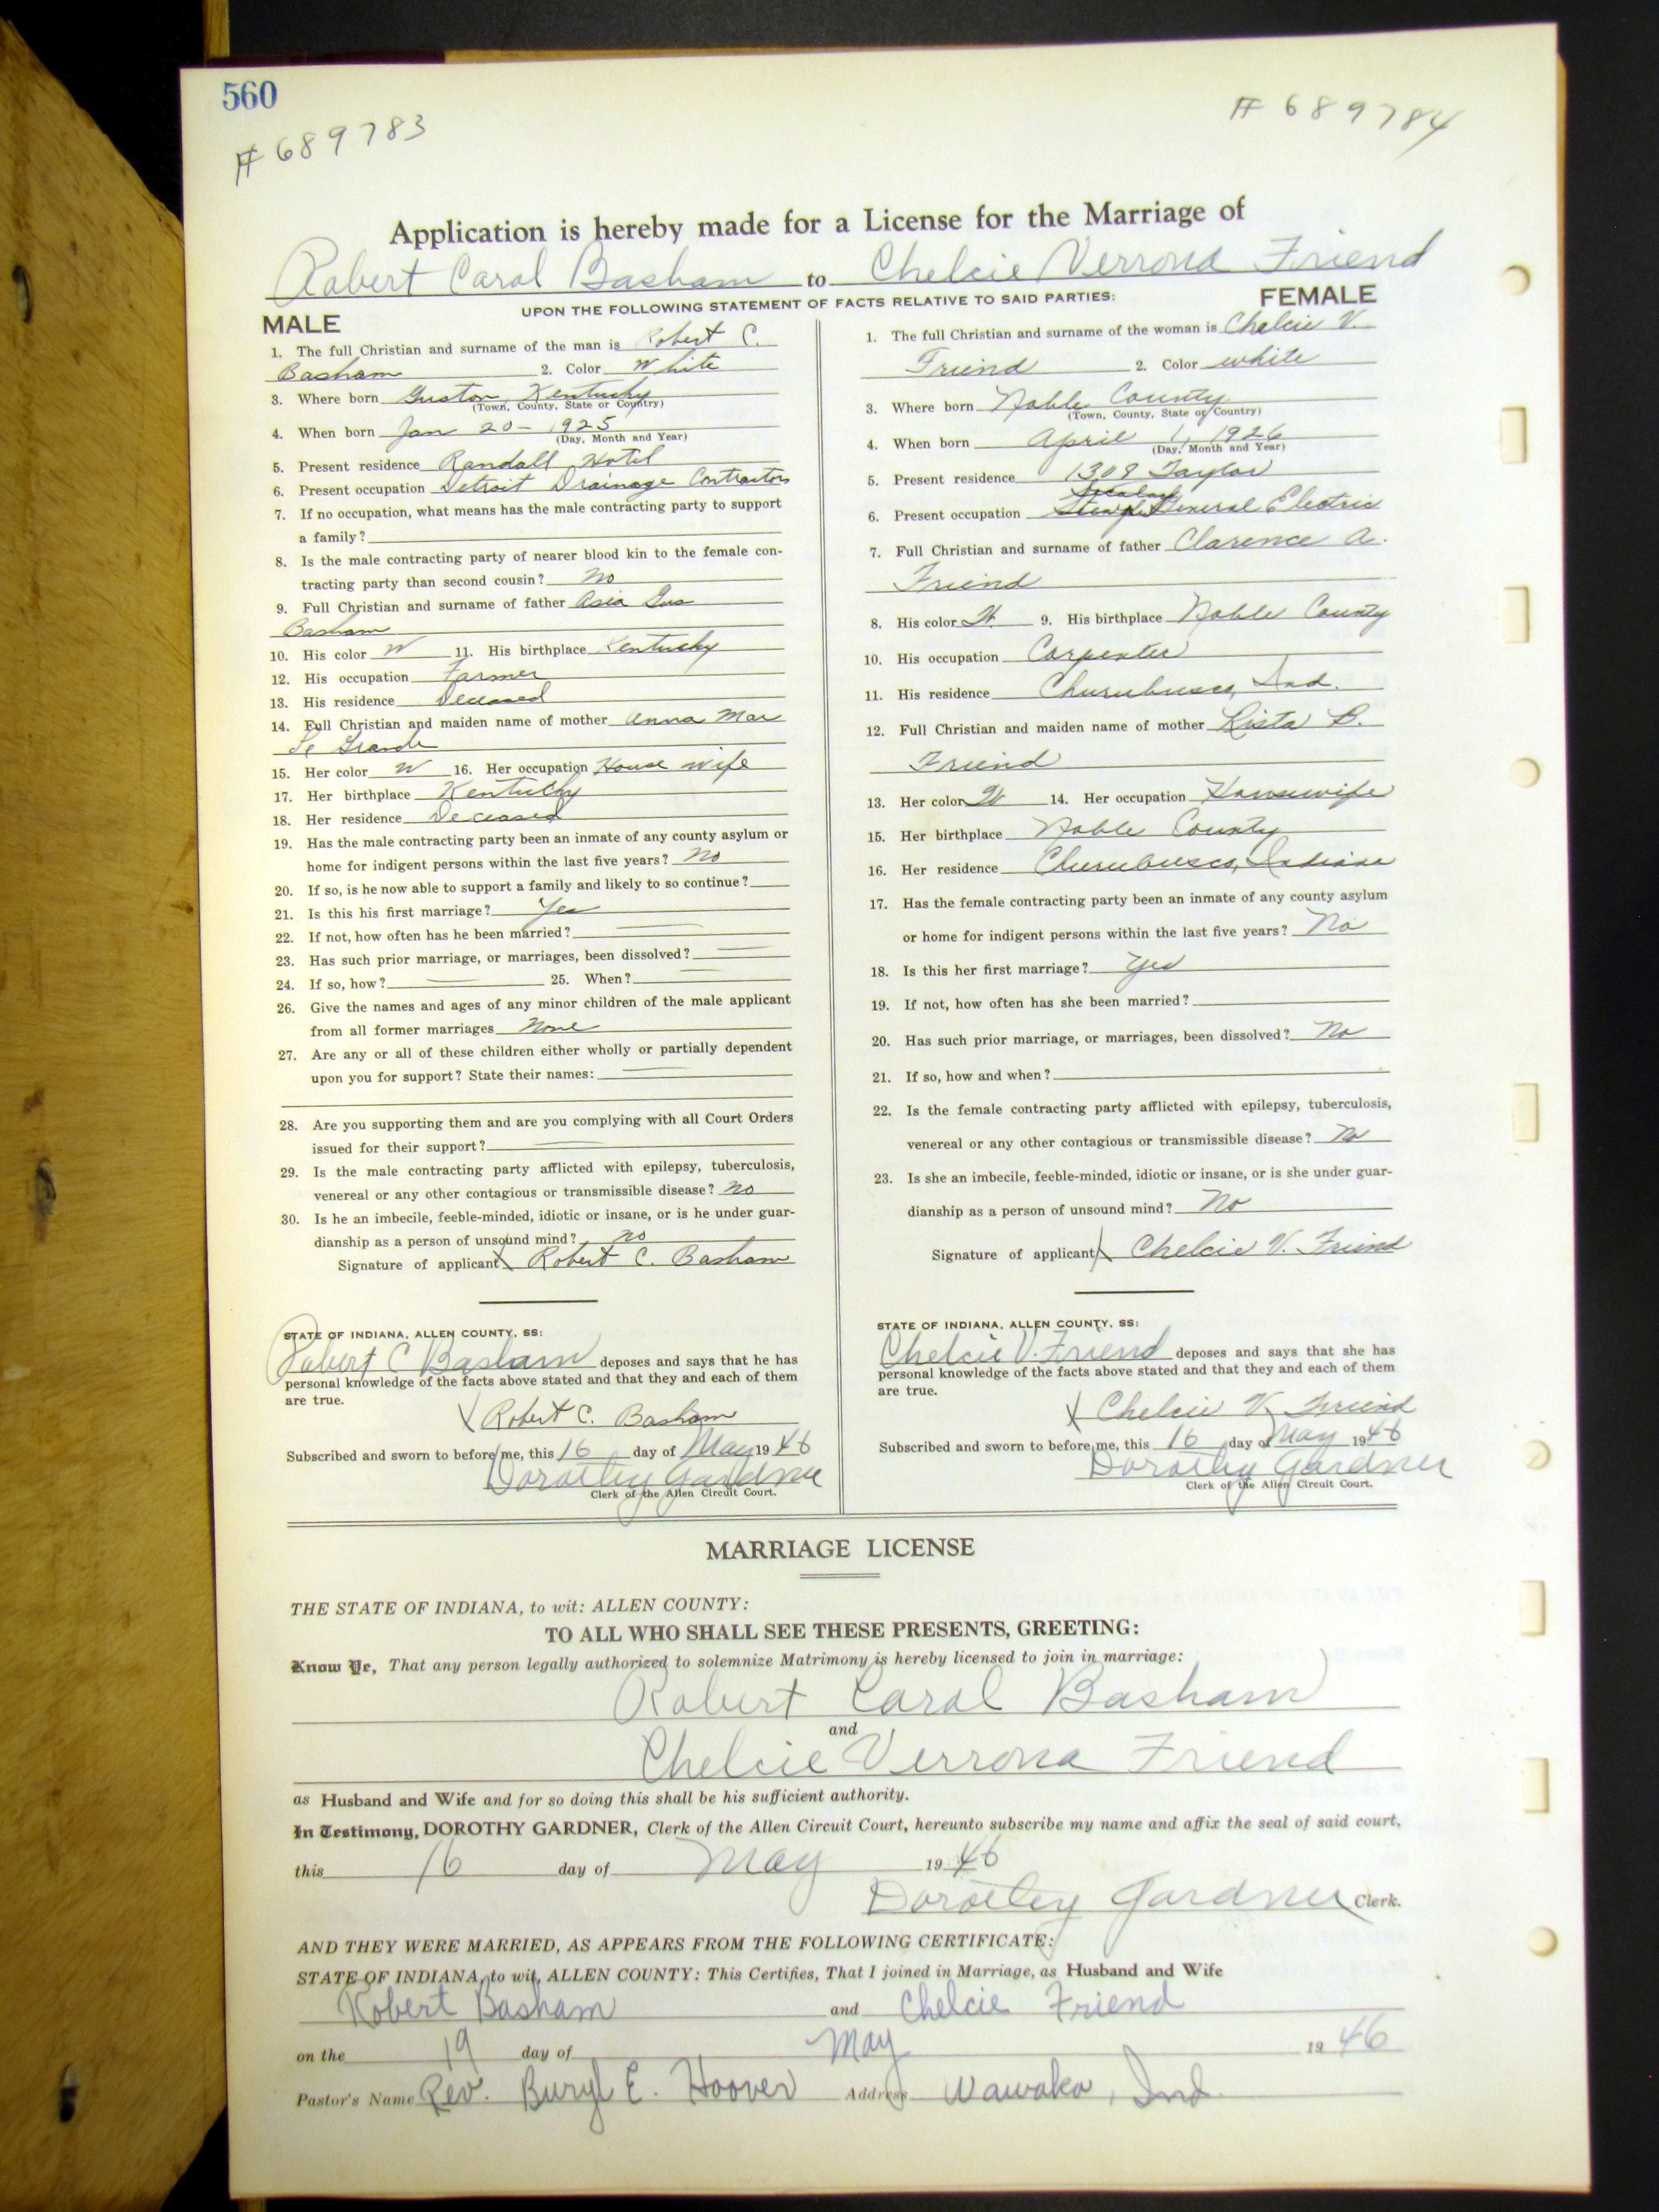 560
# 689783
# 689784
Application is hereby made for a License for the Marriage of
Robert Carol Basham to Chelcie Verrona Friend
UPON THE FOLLOWING STATEMENT OF FACTS RELATIVE TO SAID PARTIES:
MALE
1. The full Christian and surname of the man is Robert C.
Basham 2. Color White
3. Where born Guston, Kentucky
(Town, County, State or Country)
4. When born Jan 20- 1925
(Day, Month and Year)
5. Present residence Randall Hotel
6. Present occupation Detroit Drainage Contractors
7. If no occupation, what means has the male contracting party to support
a family?
8. Is the male contracting party of nearer blood kin to the female con-
tracting party than second cousin? No
9. Full Christian and surname of father Asia Gus
Basham
10. His color W 11. His birthplace Kentucky
12. His occupation Farmer
13. His residence Deceased
14. Full Christian and maiden name of mother Anna Mae
Le Grande
15. Her color W 16. Her occupation House wife
17. Her birthplace Kentucky
18. Her residence Deceased
19. Has the male contracting party been an inmate of any county asylum or
home for indigent persons within the last five years? No
20. If so, is he now able to support a family and likely to so continue?
21. Is this his first marriage? Yes
22. If not, how often has he been married?
23. Has such prior marriage, or marriages, been dissolved?
24. If so, how? 25. When?
26. Give the names and ages of any minor children of the male applicant
from all former marriages None
27. Are any or all of these children either wholly or partially dependent
upon you for support? State their names:
28. Are you supporting them and are you complying with all Court Orders
issued for their support?
29. Is the male contracting party afflicted with epilepsy, tuberculosis,
venereal or any other contagious or transmissible disease? No
30. Is he an imbecile, feeble-minded, idiotic or insane, or is he under guar-
dianship as a person of unsound mind? No
Signature of applicant X Robert C. Basham
STATE OF INDIANA, ALLEN COUNTY, SS:
Robert C Basham deposes and says that he has
personal knowledge of the facts above stated and that they and each of them
are true.
X Robert C. Basham
Subscribed and sworn to before me, this 16 day of May 1946
Dorothy Gardner
Clerk of the Allen Circuit Court.
FEMALE
1. The full Christian and surname of the woman is Chelcie V.
Friend 2. Color white
3. Where born Noble County
(Town, County, State or Country)
4. When born April 1, 1926
(Day, Month and Year)
5. Present residence 1309 Taylor
6. Present occupation General Electric
7. Full Christian and surname of father Clarence A.
Friend
8. His color W. 9. His birthplace Noble County
10. His occupation Carpenter
11. His residence Churubusco, Ind.
12. Full Christian and maiden name of mother Lista B.
Friend
13. Her color W 14. Her occupation Housewife
15. Her birthplace Noble County
16. Her residence Churubusco, Indiana
17. Has the female contracting party been an inmate of any county asylum
or home for indigent persons within the last five years? No
18. Is this her first marriage? Yes
19. If not, how often has she been married?
20. Has such prior marriage, or marriages, been dissolved? No
21. If so, how and when?
22. Is the female contracting party afflicted with epilepsy, tuberculosis,
venereal or any other contagious or transmissible disease? No
23. Is she an imbecile, feeble-minded, idiotic or insane, or is she under guar-
dianship as a person of unsound mind? No
Signature of applicant X Chelcie V. Friend
STATE OF INDIANA, ALLEN COUNTY, SS:
Chelcie V. Friend deposes and says that she has
personal knowledge of the facts above stated and that they and each of them
are true.
X Chelcie V. Friend
Subscribed and sworn to before me, this 16 day of May 1946
Dorothy Gardner
Clerk of the Allen Circuit Court.
MARRIAGE LICENSE
THE STATE OF INDIANA, to wit: ALLEN COUNTY:
TO ALL WHO SHALL SEE THESE PRESENTS, GREETING:
Know Ye, That any person legally authorized to solemnize Matrimony is hereby licensed to join in marriage:
Robert Carol Basham
and
Chelcie Verrona Friend
as Husband and Wife and for so doing this shall be his sufficient authority.
In Testimony, DOROTHY GARDNER, Clerk of the Allen Circuit Court, hereunto subscribe my name and affix the seal of said court,
this 16 day of May 1946
Dorothy Gardner Clerk.
AND THEY WERE MARRIED, AS APPEARS FROM THE FOLLOWING CERTIFICATE:
STATE OF INDIANA, to wit, ALLEN COUNTY: This Certifies, That I joined in Marriage, as Husband and Wife
Robert Basham and Chelcie Friend
on the 19 day of May 1946
Pastor's Name Rev. Buryl E. Hoover Address Wawaka, Ind.